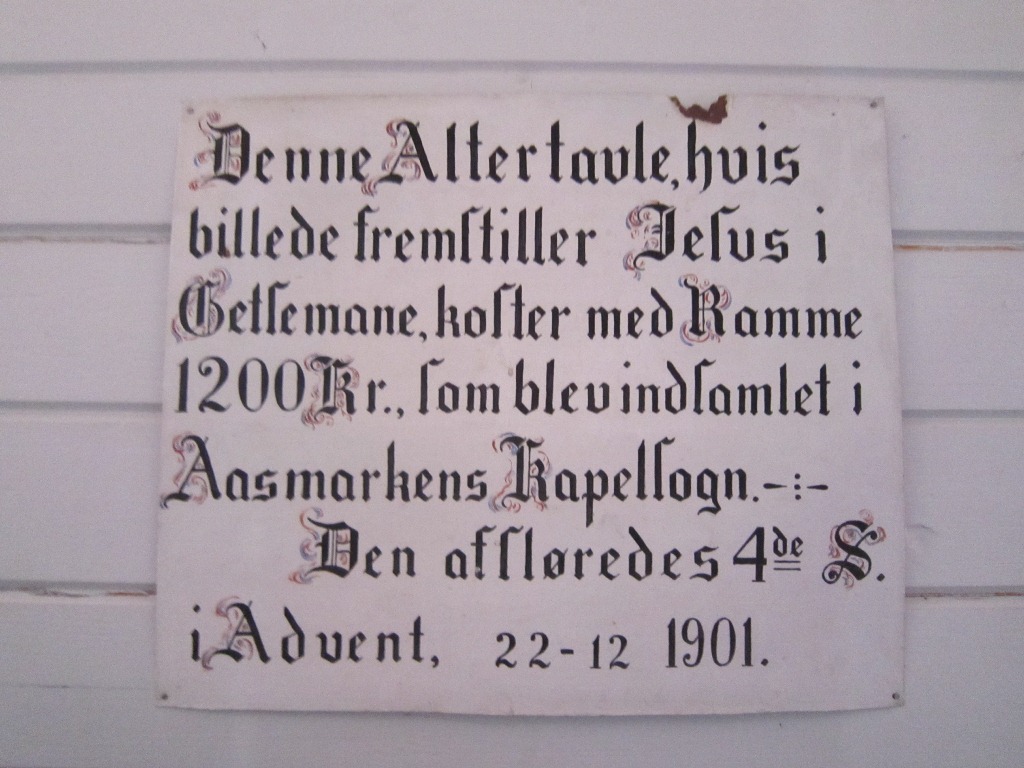 Denne Altertavle, hvis
billede fremſtiller Jeſus i
Getſemane, koſter med Ramme
1200 Kr., ſom blev indſamlet i
Aasmarkens Kapelſogn.-:-
Den afſløredes 4de S.
i Advent, 22-12 1901.